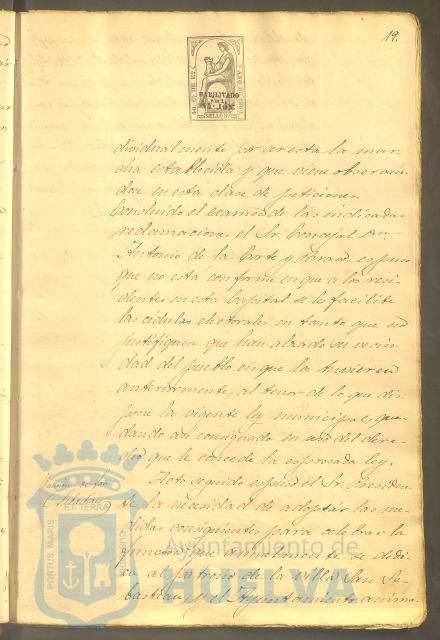 19.
50 CS. DE ESC.
AÑO DE 1869
HABILITADO
POR LA
NACION
SELLO 9º
dividualmente por ser esta la mar-
cha establecida y que viene observan-
dose en esta clase de peticiones.
Concluido el examen de las indicadas
reclamaciones el Sr. Concejal Dn.
Antonio de la Corte y espuso
que no esta conforme en que á los resi-
dentes en esta Capital se les facilite
las cédulas electorales en tanto que no
justifiquen que han alzado su vecin-
dad del pueblo en que la tuvieren
anteriormente, al tenor de lo que dis-
pone la vigente ley municipal, que-
dando asi consignado en uso del dere-
cho que le concede la espresada ley.
Acto seguido espuso el Sr. Presiden-
te la necesidad de adoptar las me-
didas consiguientes para celebrar la
funcion que anualmente se dedi-
ca al patrono de la villa San Se-
bastian, y el Ayuntamiento anima-
PORTUS MARIS
ET TERRAE
CUSTODIA
Ayuntamiento de
HUELVA